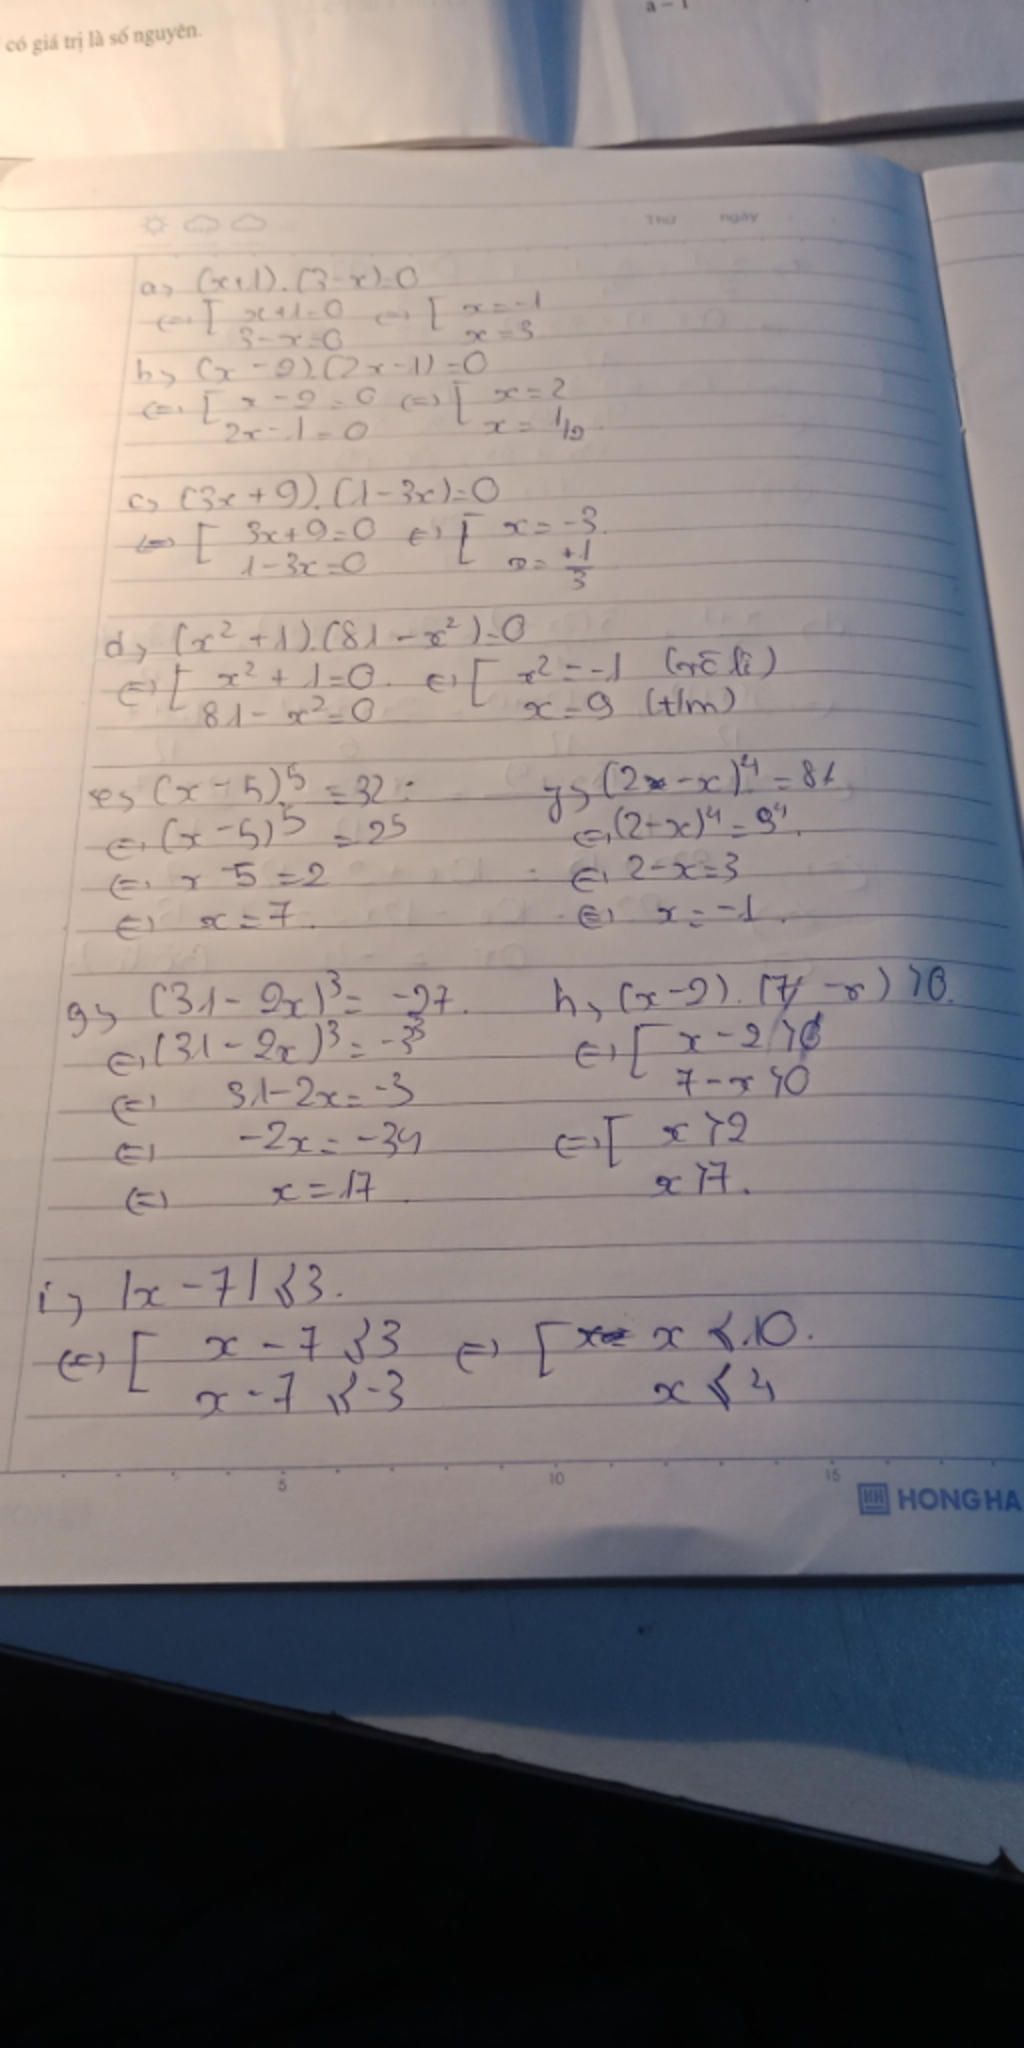 có giá trị là số nguyên.
a - 1
Thứ ngày
a, (x+1).(3-x)=0
<=> [ x+1=0 <=> [ x=-1
3-x=0 x=3
b, (x-2).(2x-1)=0
<=> [ x-2=0 <=> [ x=2
2x-1=0 x=1/2.
c, (3x+9).(1-3x)=0
<=> [ 3x+9=0 <=> [ x=-3.
1-3x=0 x=+1/3
d, (x²+1).(81-x²)=0
<=> [ x²+1=0. <=> [ x²=-1 (vô lí)
81-x²=0 x=9 (t/m)
e, (x-5)⁵=32.
<=> (x-5)⁵=2⁵
<=> x-5=2
<=> x=7.
(2-x)⁴=81
<=> (2-x)⁴=3⁴.
<=> 2-x=3
<=> x=-1.
g, (31-2x)³=-27.
<=> (31-2x)³=-3³
<=> 31-2x=-3
<=> -2x=-34
<=> x=17.
h, (x-2).(7-x)>0.
<=> [ x-2>0
7-x>0
<=> [ x>2
x>7.
i, |x-7|≤3.
<=> [ x-7≤3 <=> [ x≤10.
x-7≤-3 x≤4
5 10 15
HH HONG HA